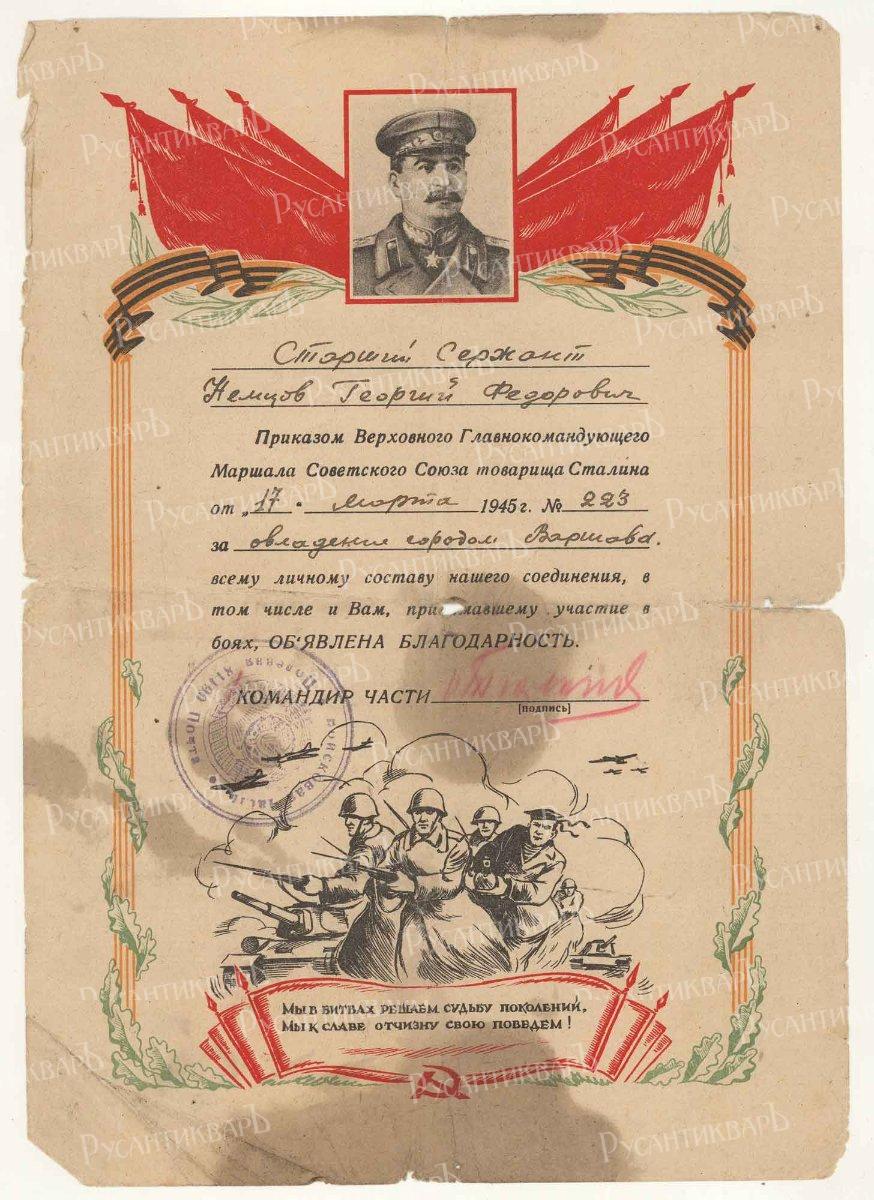 Старший Сержант
Немцов Георгий Федорович
Приказом Верховного Главнокомандующего
Маршала Советского Союза товарища Сталина
от „17" марта 1945 г. № 223
за овладение городом Варшава.
всему личному составу нашего соединения, в
том числе и Вам, при мавшему участие в
боях, ОБ'ЯВЛЕНА БЛАГОДАРНОСТЬ.
КОМАНДИР ЧАСТИ
[подпись]
Полевая Почта
Войсковая часть
МЫ В БИТВАХ РЕШАЕМ СУДЬБУ ПОКОЛЕНИЙ,
МЫ К СЛАВЕ ОТЧИЗНУ СВОЮ ПОВЕДЕМ!
РусАнтикварЪ